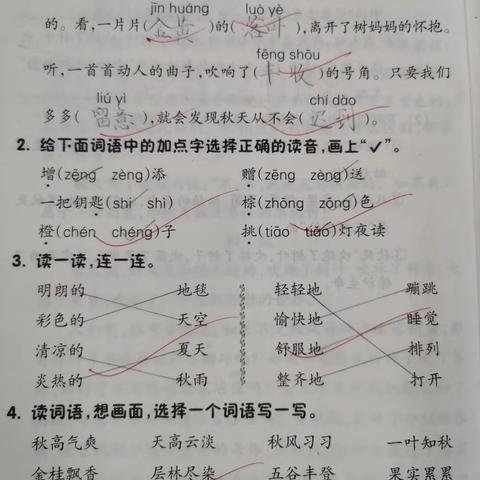 jīn huáng luò yè
的。看,一片片(金黄)的(落叶),离开了树妈妈的怀抱。
fēng shōu
听,一首首动人的曲子,吹响了(丰收)的号角。只要我们
liú yì chí dào
多多(留意),就会发现秋天从不会(迟到)。
2. 给下面词语中的加点字选择正确的读音,画上“✓”。
增(zēng zèng)添 赠(zēng zèng)送
一把钥匙(shi shì) 棕(zhōng zōng)色
橙(chén chéng)子 挑(tiāo tiǎo)灯夜读
3. 读一读,连一连。
明朗的 地毯 轻轻地 蹦跳
彩色的 天空 愉快地 睡觉
清凉的 夏天 舒服地 排列
炎热的 秋雨 整齐地 打开
4. 读词语,想画面,选择一个词语写一写。
秋高气爽 天高云淡 秋风习习 一叶知秋
金桂飘香 层林尽染 五谷丰登 果实累累